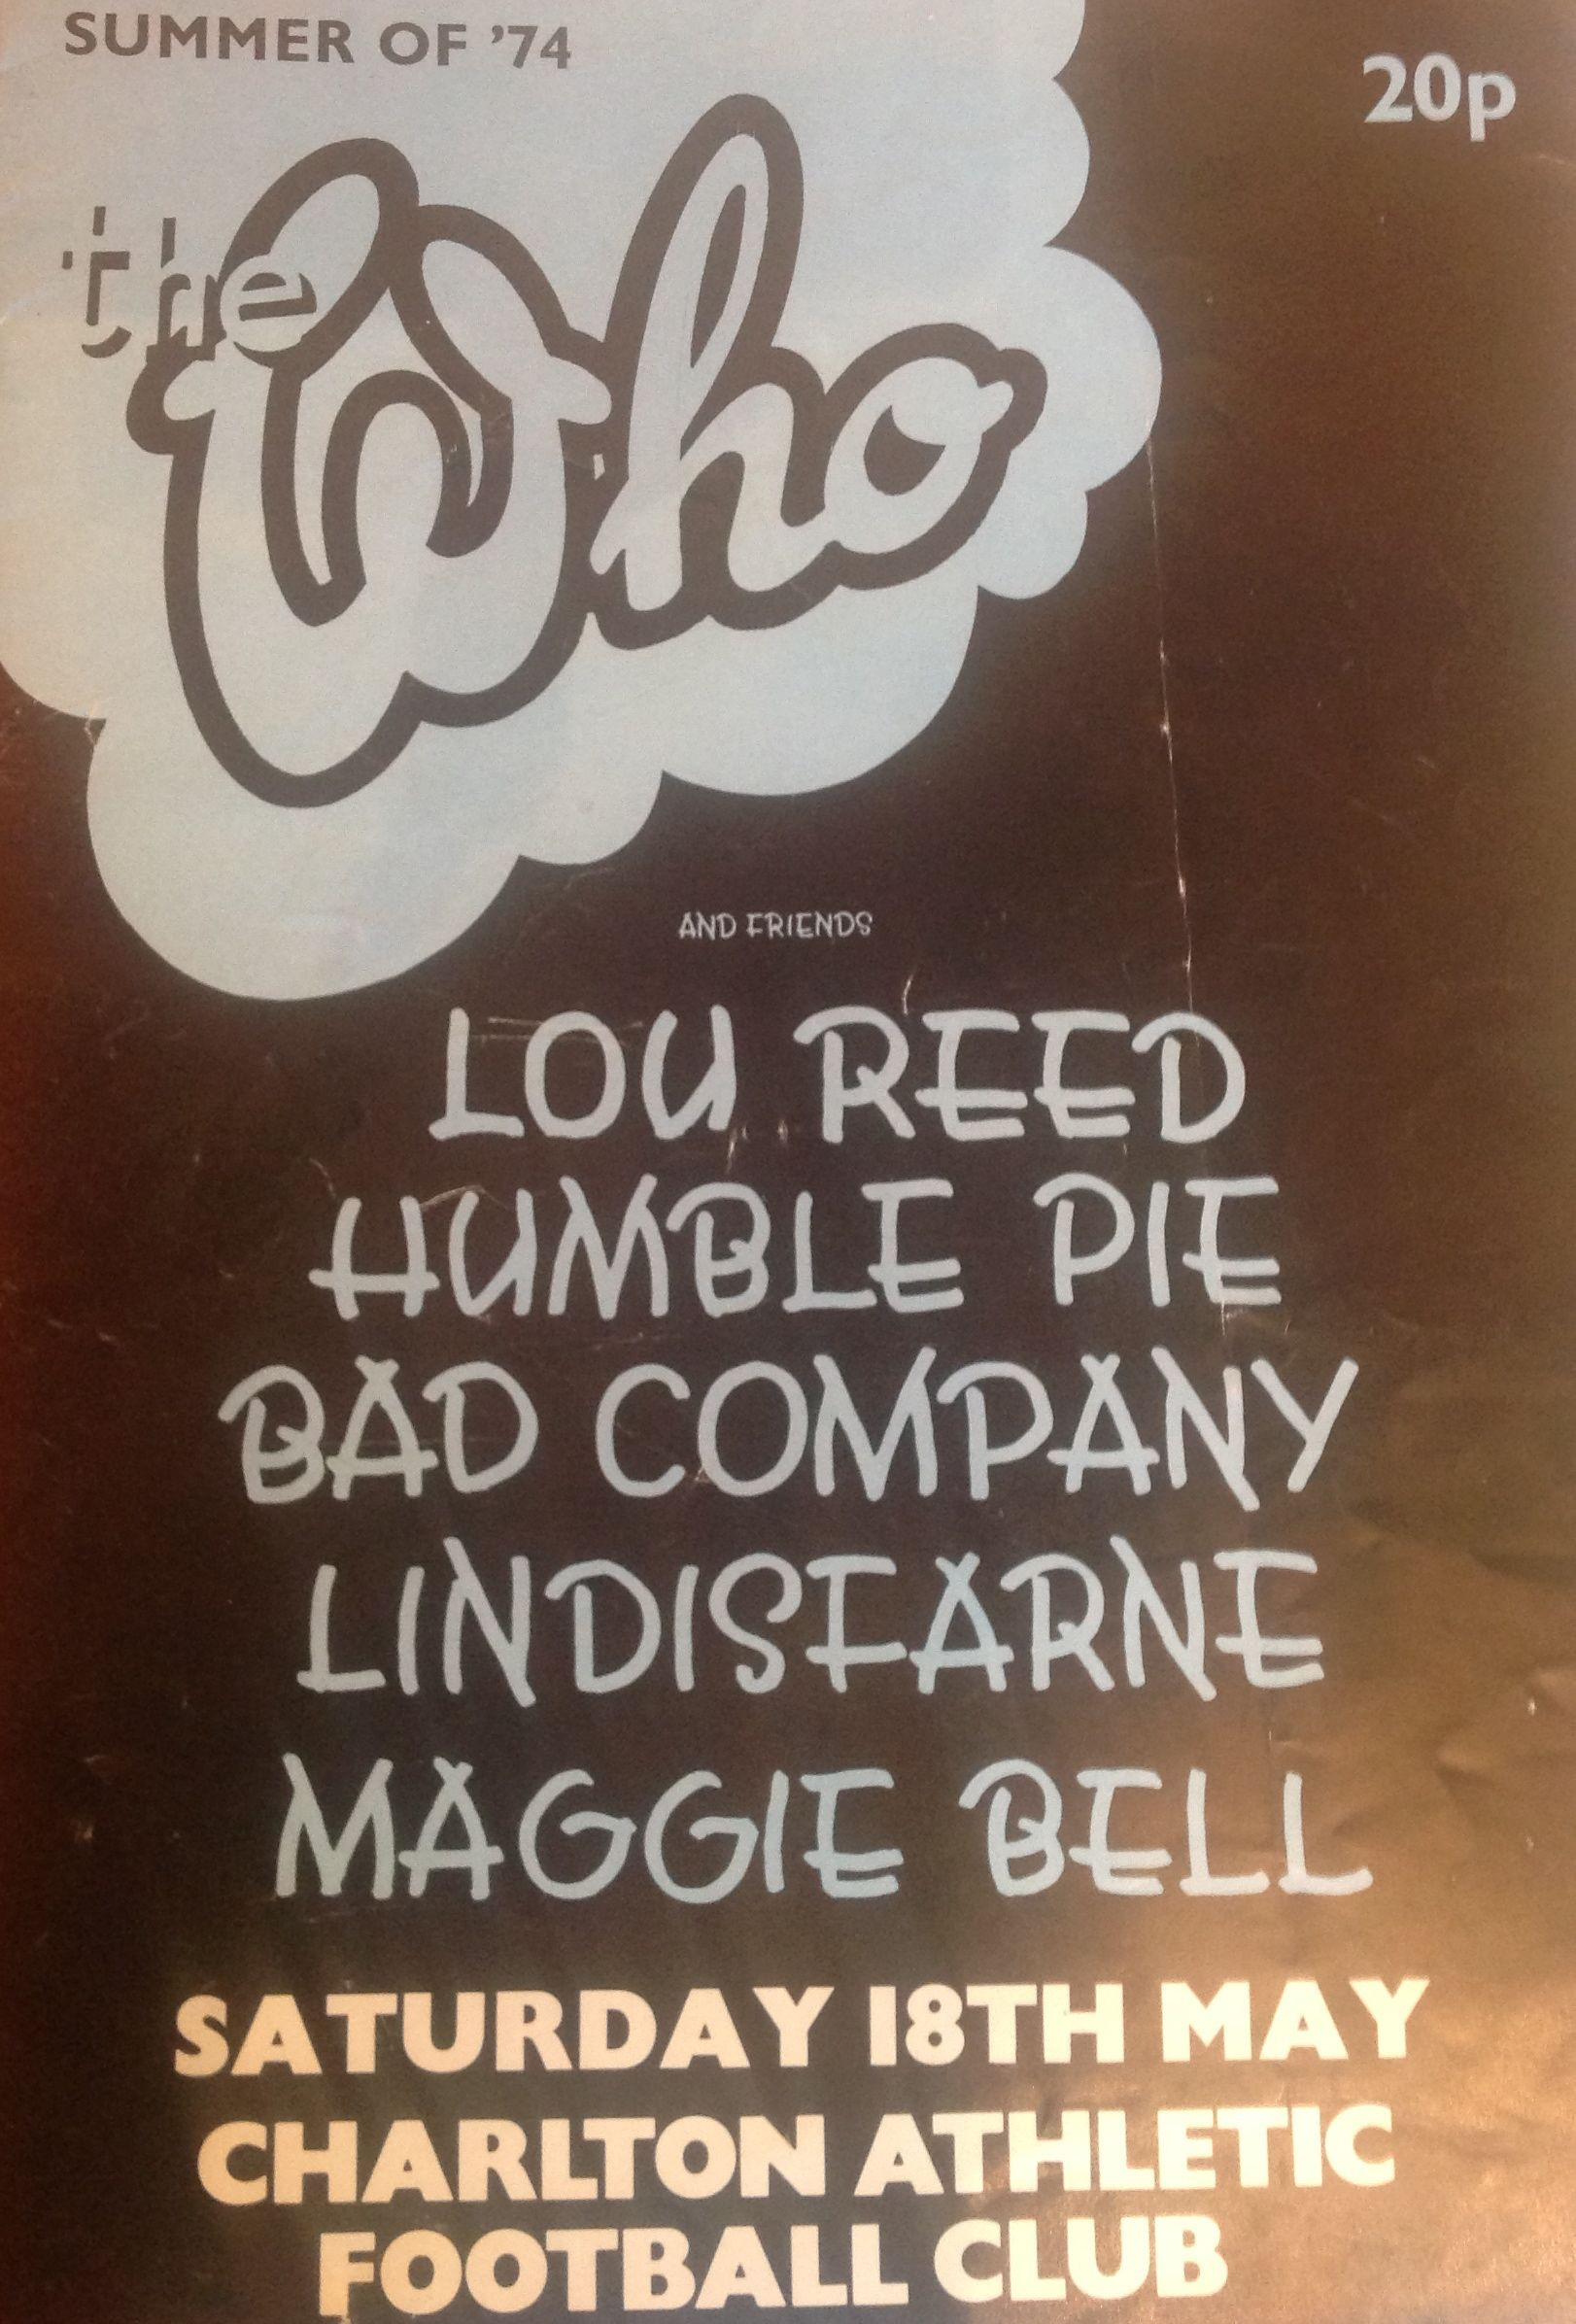 SUMMER OF '74
20p
the Who
AND FRIENDS
LOU REED
HUMBLE PIE
BAD COMPANY
LINDISFARNE
MAGGIE BELL
SATURDAY 18TH MAY
CHARLTON ATHLETIC
FOOTBALL CLUB